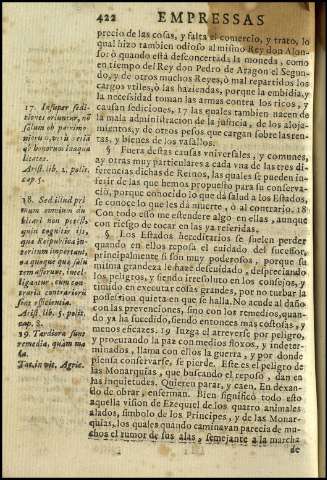 422 EMPRESSAS
precio de las cosas, y falta el comercio, y trato, lo
qual hizo tambien odioso al mismo Rey don Alon-
so: ò quando està desconcertada la moneda, como
en tiempo del Rey don Pedro de Aragon el Segun-
do, y de otros muchos Reyes, ò mal repartidos los
cargos vtiles, ò las haziendas, porque la embidia, y
la necesidad toman las armas contra los ricos, y
causan sediciones, 17 y las quales tambien nacen de
la mala administracion de la justicia, de los aloja-
mientos, y de otros pesos que cargan sobre las ren-
tas, y bienes de los vasallos.
§ Fuera destas causas vniversales, y comunes,
ay otras muy particulares a cada vna de las tres di-
ferencias dichas de Reinos, las quales se pueden in-
ferir de las que hemos propuesto para su conserva-
cion, porque conocido lo que dà salud a los Estados,
se conoce lo que les dà muerte, ò al contrario. 18
Con todo esso me estenderè algo en ellas, aunque
con riesgo de tocar en las ya referidas.
§ Los Estados hereditarios se suelen perder
quando en ellos reposa el cuidado del sucessor,
principalmente si son muy poderosos, porque su
misma grandeza le haze descuidado, despreciando
los peligros, y siendo irresoluto en los consejos, y
timido en executar cosas grandes, por no turbar la
possession quieta en que se halla. No acude al daño
con las prevenciones, sino con los remedios, quan-
do ya ha sucedido, siendo entonces mas costosas, y
menos eficazes. 19 Iuzga el atreverse por peligro,
y procurando la paz con medios floxos, y indeter-
minados, llama con ellos la guerra, y por donde
piensa conservarse, se pierde. Este es el peligro de
las Monarquias, que buscando el reposo, dan en
las inquietudes. Quieren parar, y caen, En dexan-
do de obrar, enferman. Bien significò todo esto
aquella vision de Ezequiel de los quatro animales
alados, simbolo de los Principes, y de las Monar-
quias, los quales quando caminavan parecia de mu-
chos el rumor de sus alas, semejante a la marcha
de
17. Insuper sedi-
tiones oriuntur, no
solum ob patrimo-
niorũ, verũ etiã
ob honorum inæqua
litates.
Arist. lib. 2. polit.
cap. 5.
18. Sed illud pri
mum omnium du
bitari non
quin cognitis ijs,
quæ Rempublicæ in-
teritum important,
ea quoque quæ salu
tem afferunt, intel
ligantur, cum con
traria contrariorũ
sint efficientia.
Arist. lib. 5. polit.
cap. 8.
19. Tardiora sunt
remedia, quàm ma
la.
Tac. in vit. Agric.